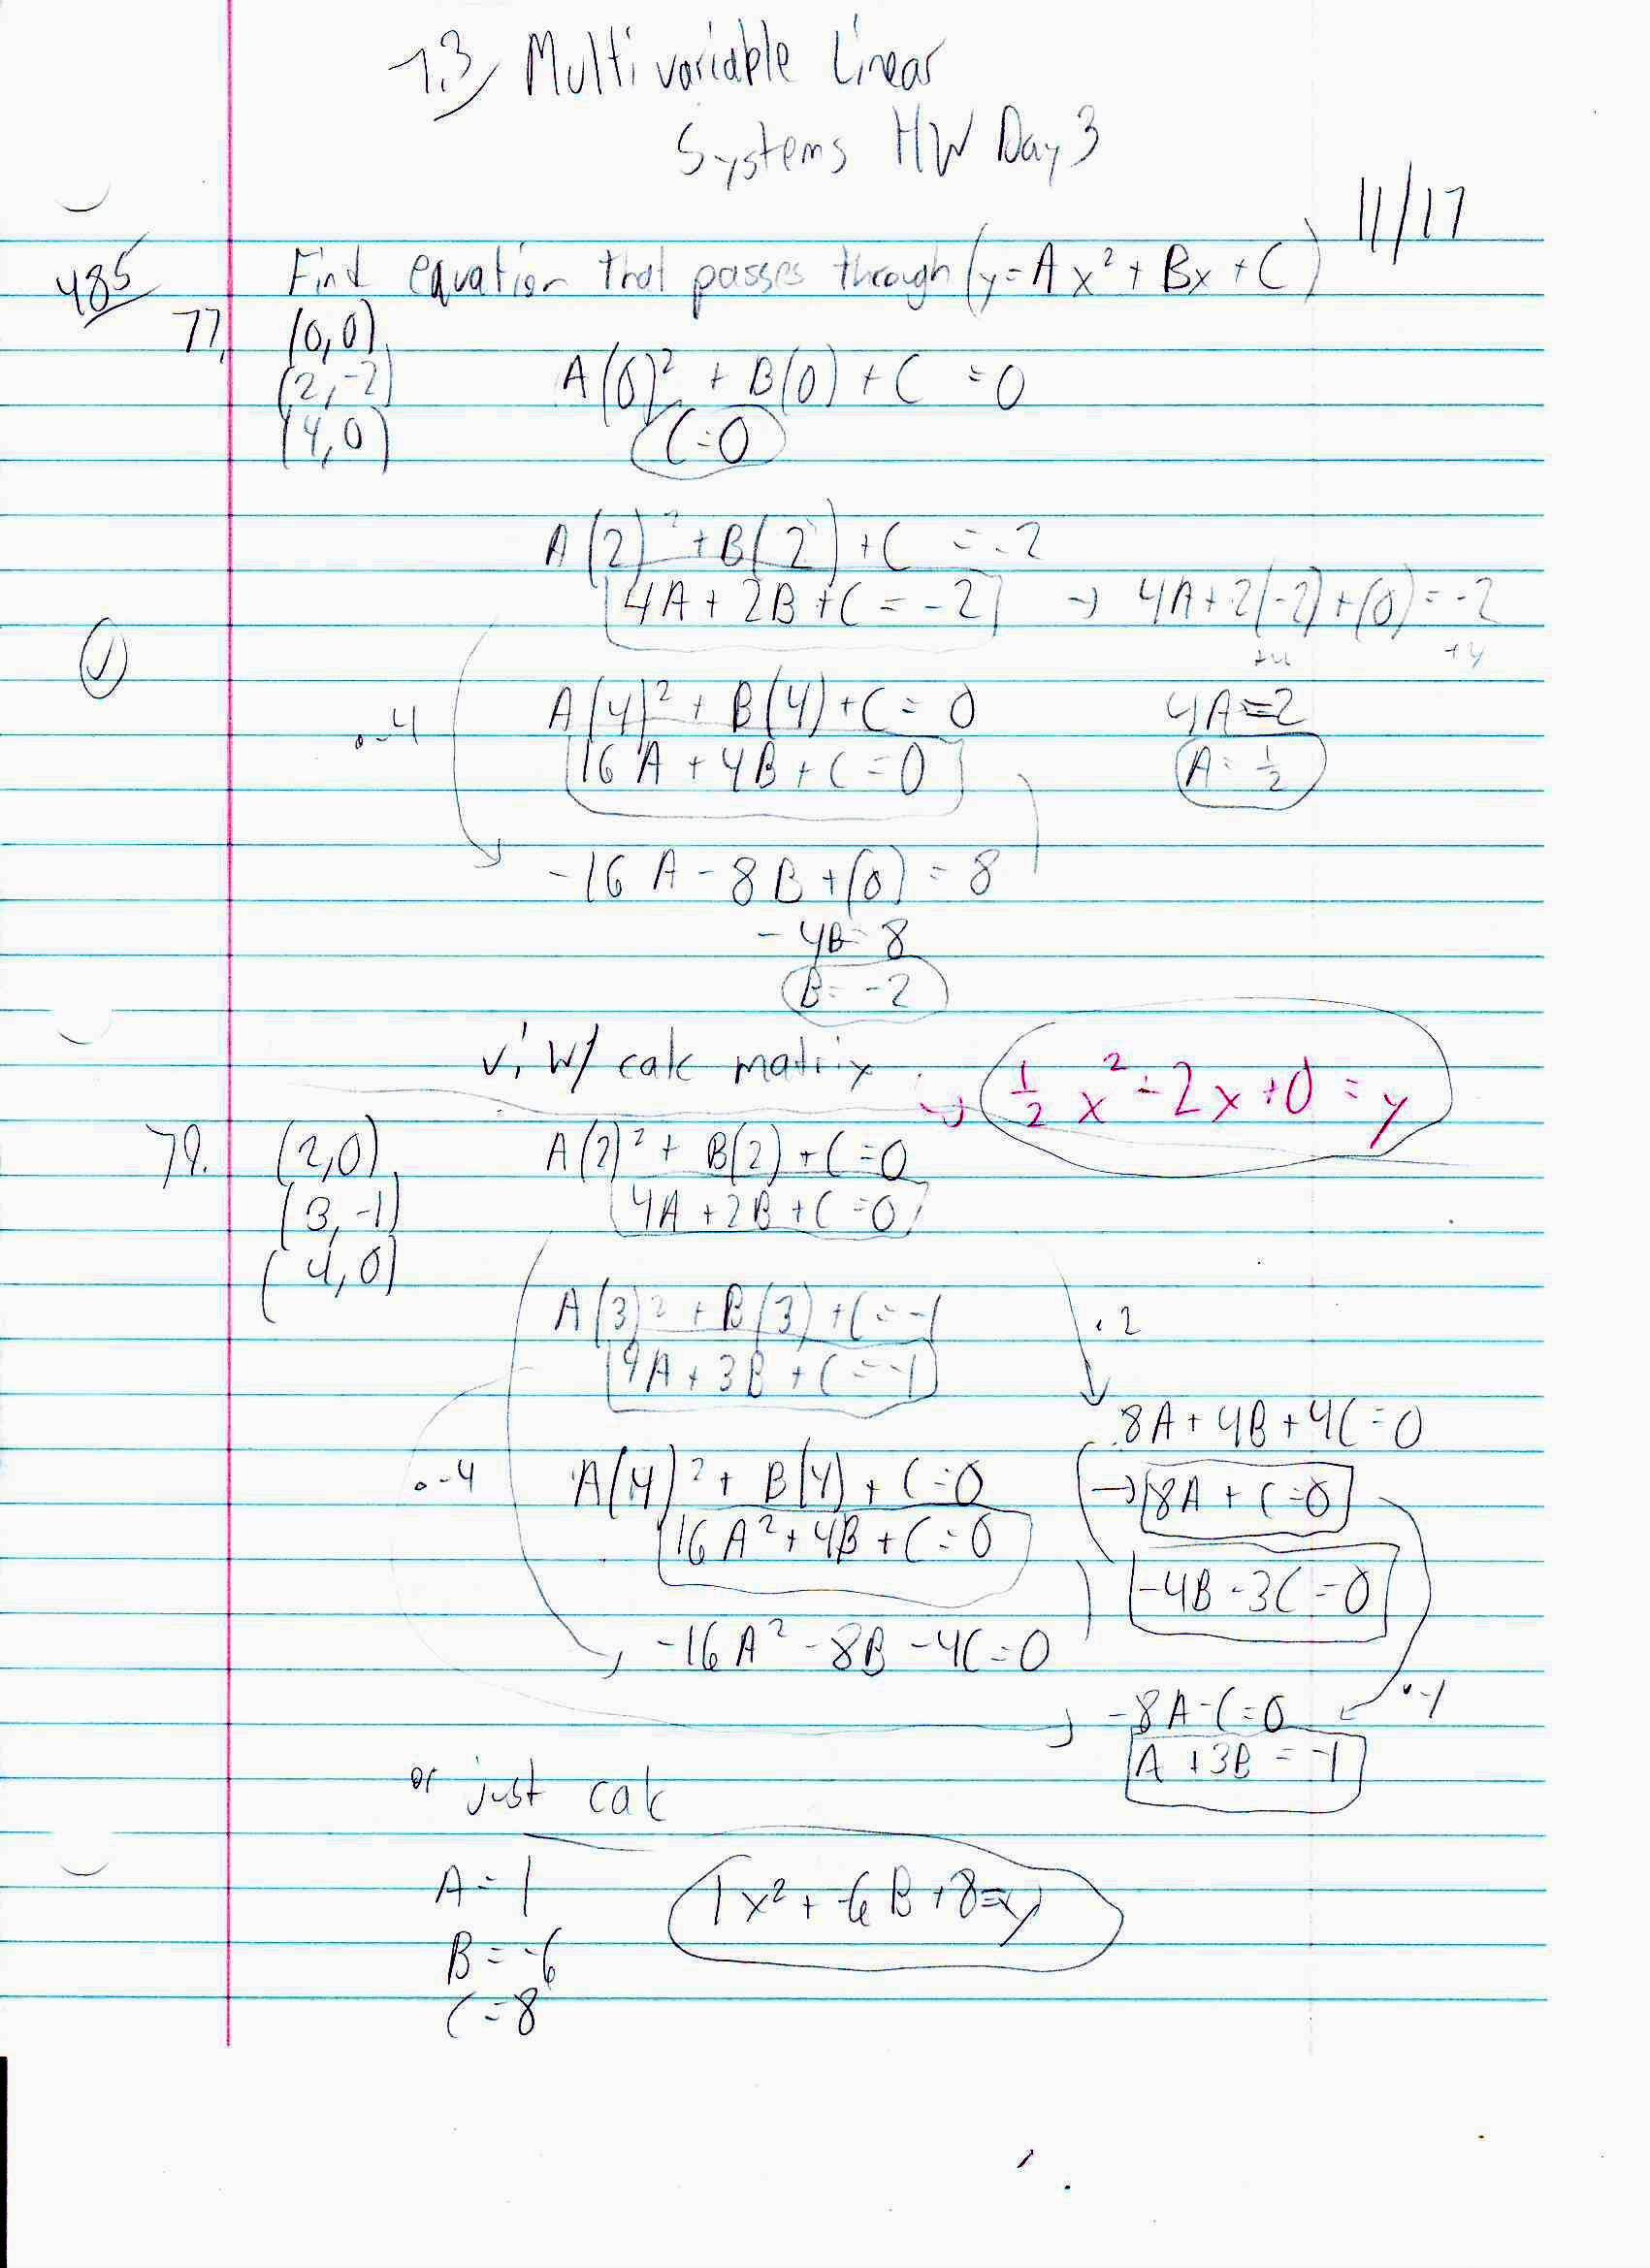 7.3 Multivariable Linear
Systems HW Day 3
11/17
485 Find equation that passes through (y=Ax²+Bx+C)
77. (0,0)
(2,-2) A(0)² + B(0) + C = 0
(4,0) C=0
A(2)²+B(2)+C = -2
4A+2B+C=-2 → 4A+2(-2)+(0)=-2
+4 +4
√
·-4 A(4)²+B(4)+C=0 4A=2
16A+4B+C=0 A=1/2
-16A-8B+(0)=8
-4B=8
B=-2
√'i w/ calc matrix → 1/2x²-2x+0=y
79. (2,0) A(2)²+B(2)+C=0
(3,-1) 4A+2B+C=0
(4,0)
A(3)²+B(3)+C=-1 ·2
9A+3B+C=-1
8A+4B+4C=0
·-4 A(4)²+B(4)+C=0 → 8A+C=0
16A²+4B+C=0
-4B-3C=0
-16A²-8B-4C=0
-8A-C=0 ·-1
A+3B=-1
or just calc
A=1 1x²+-6B+8=y
B=-6
C=8